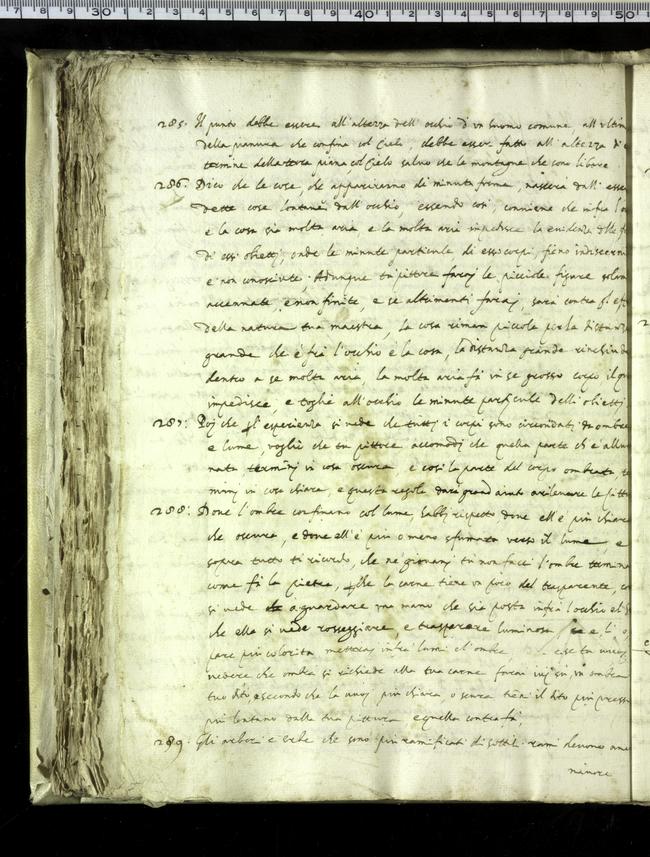 7 8 9 30 1 2 3 4 5 6 7 8 9 40 1 2 3 4 5 6 7 8 9 50
285. Il punto debbe essere all'altezza dell'ochio d'un huomo comune all'ultim
della pianura che confina col Cielo, debbe esser fatto all'altezza d'e
termine della terra piana col Cielo salvo che le montagne che sono libere
286. Dico che le cose, che appariranno di minuta forma, nascerà dall'esse
dette cose lontane dall'occhio, essendo così, conviene che infra l'o
e la cosa sia molta aria e la molta aria impedisce la evidenza delle f
di essi obietti, onde le minute particule di essi corpi, fieno indiscerni
e non conosciute. Adunque tu pittore farai le picciole figure solam
accennate, e non finite, e se altrimenti farai, sarà contra gl'efe
della natura tua maestra, la cosa riman piccola per la distanza
grande che è fra l'occhio e la cosa, la distanza grande rinchiude
dentro a se molta aria, la molta aria fa in se grosso corpo il qu
impedisce, e toglie all'occhio le minute particule delli obietti
287. Poi che l'esperienza si vede che tutti i corpi sono circondati da ombre
e lume, voglio che tu pittore accomodi che quella parte ch'è allu
nata termini in cosa oscura, e così la parte del corpo ombrata te
mini in cosa chiara, e questa regola darà grand aiuto a rilevare le fitt
288. Dove l'ombre confinano col lume, habbi rispetto dove ell'è più chiara
che oscura, e dove ell'è più o meno sfumata verso il lume, e
sopra tutto ti ricordo, che ne giovani tu non facci l'ombre termina
come fa la pietra, che la carne tiene un poco del trasparente, co
si vede a guardare una mano che sia posta infra l'occhio el S
che ella si vede rosseggiare, e trasparere luminosa
pare più colorita metterai infra lumi el'ombre, e se tu vuoi
vedere che ombra si richiede alla tua carne farai ivi su, un ombra
tuo dito a secondo che la vuoi più chiara o scura tieni il dito più presso
più lontano dalla tua pittura e quella contrafà;
289. Gli arbori e erbe che sono più ramificati di sottili rami devono ave
minore